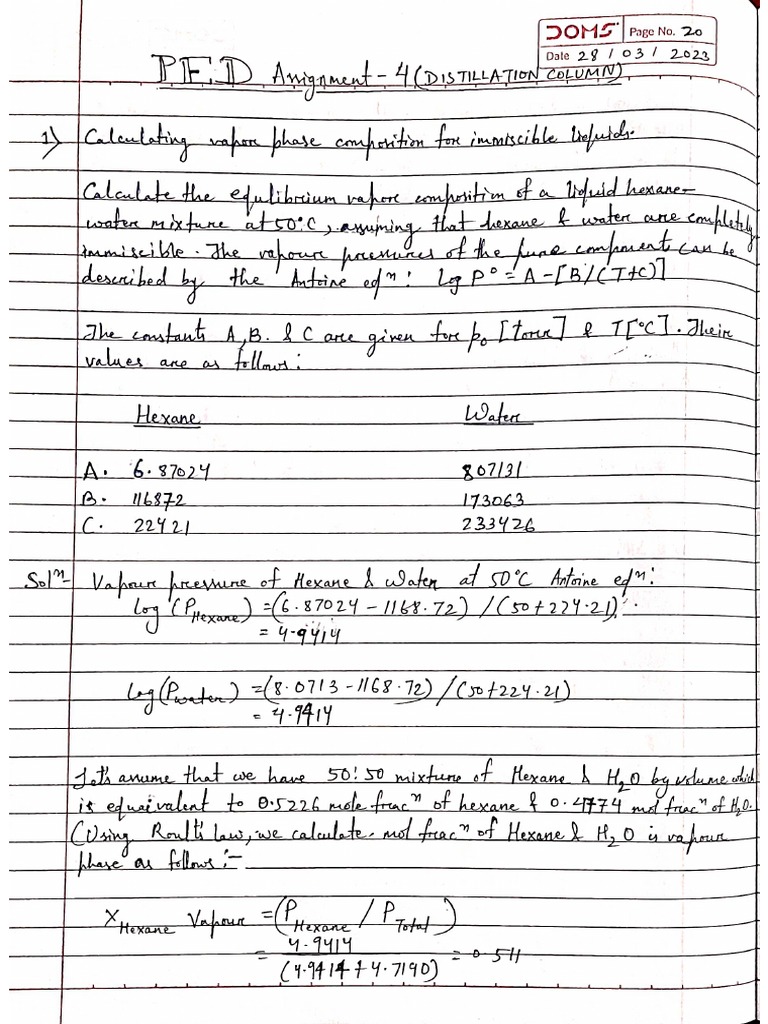 DOMS Page No. 20
Date 28 / 03 / 2023
P.E.D Assignment - 4 (DISTILLATION COLUMN)
1) Calculating vapor phase composition for immiscible liquids.
Calculate the equlibrium vapor composition of a liquid hexane-
water mixture at 50°C, assuming that hexane & water are completely
immiscible. The vapour pressures of the pure component can be
described by the Antoine eqⁿ: Log P° = A - [B/(T+C)]
The constants A, B. & C are given for p₀ [torr] & T[°C]. Their
values are as follows:
Hexane Water
A. 6.87024 807131
B. 116872 173063
C. 22421 233426
Solⁿ- Vapour pressure of Hexane & Water at 50°C Antoine eqⁿ:
log (P_Hexane) = (6.87024 - 1168.72) / (50+224.21)
= 4.9414
Log (P_water) = (8.0713 - 1168.72) / (50+224.21)
= 4.9414
Let's assume that we have 50:50 mixture of Hexane & H₂O by volume which
is equivalent to 0.5226 mole fracⁿ of hexane & 0.4774 mol fracⁿ of H₂O.
(Using Roult's law, we calculate mol fracⁿ of Hexane & H₂O is vapour
phase as follows:-
X_Hexane Vapour = (P_Hexane / P_Total)
= 4.9414 / (4.9414 + 4.7190) = 0.511